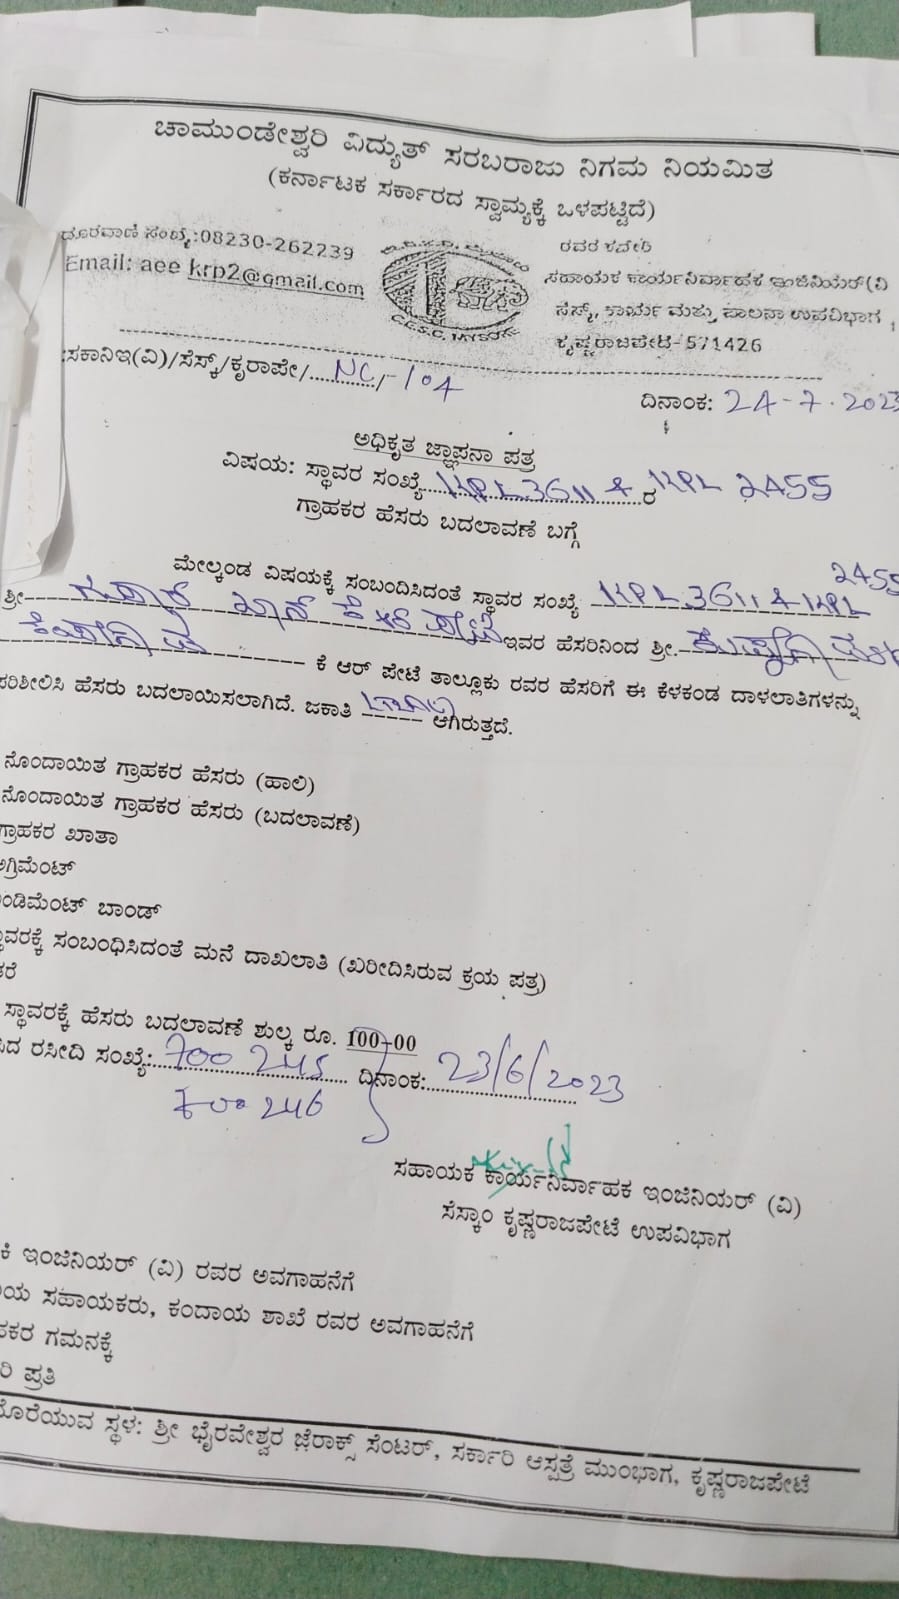 ಚಾಮುಂಡೇಶ್ವರಿ ವಿದ್ಯುತ್ ಸರಬರಾಜು ನಿಗಮ ನಿಯಮಿತ
(ಕರ್ನಾಟಕ ಸರ್ಕಾರದ ಸ್ವಾಮ್ಯಕ್ಕೆ ಒಳಪಟ್ಟಿದೆ)
ದೂರವಾಣಿ ಸಂಖ್ಯೆ:08230-262239
Email: aee krp2@gmail.com
ರವರ ಕಛೇರಿ
ಸಹಾಯಕ ಕಾರ್ಯನಿರ್ವಾಹಕ ಇಂಜಿನಿಯರ್(ವಿ
ಸೆಸ್ಕ್, ಕಾರ್ಯ ಮತ್ತು ಪಾಲನಾ ಉಪವಿಭಾಗ ,
ಕೃಷ್ಣರಾಜಪೇಟೆ-571426
:ಸಕಾನಿಇ(ವಿ)/ಸೆಸ್ಕ್/ಕೃರಾಪೇ/...NC.../-104
ದಿನಾಂಕ: 24-7-2023
ಅಧಿಕೃತ ಜ್ಞಾಪನಾ ಪತ್ರ
ವಿಷಯ: ಸ್ಥಾವರ ಸಂಖ್ಯೆ KPL 3611 & ರ KPL 2455
ಗ್ರಾಹಕರ ಹೆಸರು ಬದಲಾವಣೆ ಬಗ್ಗೆ
ಮೇಲ್ಕಂಡ ವಿಷಯಕ್ಕೆ ಸಂಬಂದಿಸಿದಂತೆ ಸ್ಥಾವರ ಸಂಖ್ಯೆ KPL 3611 & KPL 2455
ಶ್ರೀ ಖಾನ್ ಇವರ ಹೆಸರಿನಿಂದ ಶ್ರೀ.
ಕೆ ಆರ್ ಪೇಟೆ ತಾಲ್ಲೂಕು ರವರ ಹೆಸರಿಗೆ ಈ ಕೆಳಕಂಡ ದಾಳಲಾತಿಗಳನ್ನು
ಪರಿಶೀಲಿಸಿ ಹೆಸರು ಬದಲಾಯಿಸಲಾಗಿದೆ. ಜಕಾತಿ ------ ಆಗಿರುತ್ತದೆ.
ನೊಂದಾಯಿತ ಗ್ರಾಹಕರ ಹೆಸರು (ಹಾಲಿ)
ನೊಂದಾಯಿತ ಗ್ರಾಹಕರ ಹೆಸರು (ಬದಲಾವಣೆ)
ಗ್ರಾಹಕರ ಖಾತಾ
ಅಗ್ರಿಮೆಂಟ್
ಂಡಿಮೆಂಟ್ ಬಾಂಡ್
ಸ್ಥಾವರಕ್ಕೆ ಸಂಬಂಧಿಸಿದಂತೆ ಮನೆ ದಾಖಲಾತಿ (ಖರೀದಿಸಿರುವ ಕ್ರಯ ಪತ್ರ)
ತರೆ
ಸ್ಥಾವರಕ್ಕೆ ಹೆಸರು ಬದಲಾವಣೆ ಶುಲ್ಕ ರೂ. 100-00
ಸಿದ ರಸೀದಿ ಸಂಖ್ಯೆ: 700 245 ದಿನಾಂಕ: 23/6/2023
700 246
ಸಹಾಯಕ ಕಾರ್ಯನಿರ್ವಾಹಕ ಇಂಜಿನಿಯರ್ (ವಿ)
ಸೆಸ್ಕಾಂ ಕೃಷ್ಣರಾಜಪೇಟೆ ಉಪವಿಭಾಗ
ಕಿ ಇಂಜಿನಿಯರ್ (ವಿ) ರವರ ಅವಗಾಹನೆಗೆ
ಯ ಸಹಾಯಕರು, ಕಂದಾಯ ಶಾಖೆ ರವರ ಅವಗಾಹನೆಗೆ
ಹಕರ ಗಮನಕ್ಕೆ
ರಿ ಪ್ರತಿ
ದೊರೆಯುವ ಸ್ಥಳ: ಶ್ರೀ ಭೈರವೇಶ್ವರ ಜೆರಾಕ್ಸ್ ಸೆಂಟರ್, ಸರ್ಕಾರಿ ಆಸ್ಪತ್ರೆ ಮುಂಭಾಗ, ಕೃಷ್ಣರಾಜಪೇಟೆ